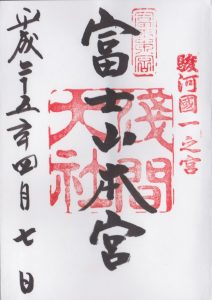 駿河國一之宮
富士山本宮
淺間大社
平成二十五年四月七日